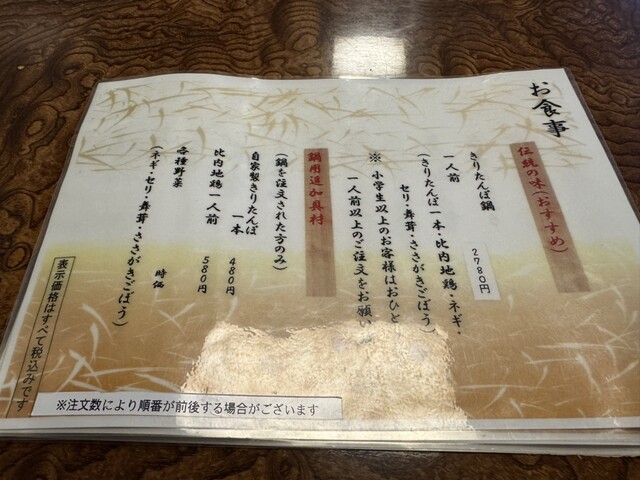 お食事
伝統の味(おすすめ)
きりたんぽ鍋
一人前 2780円
(きりたんぽ一本・比内地鶏・ネギ・
セリ・舞茸・ささがきごぼう)
※ 小学生以上のお客様はおひと
一人前以上のご注文をお願い
鍋用追加具材
(鍋を注文された方のみ)
自家製きりたんぽ
一本 480円
比内地鶏一人前 580円
各種野菜 時価
(ネギ・セリ・舞茸・ささがきごぼう)
表示価格はすべて税込みです
※注文数により順番が前後する場合がございます